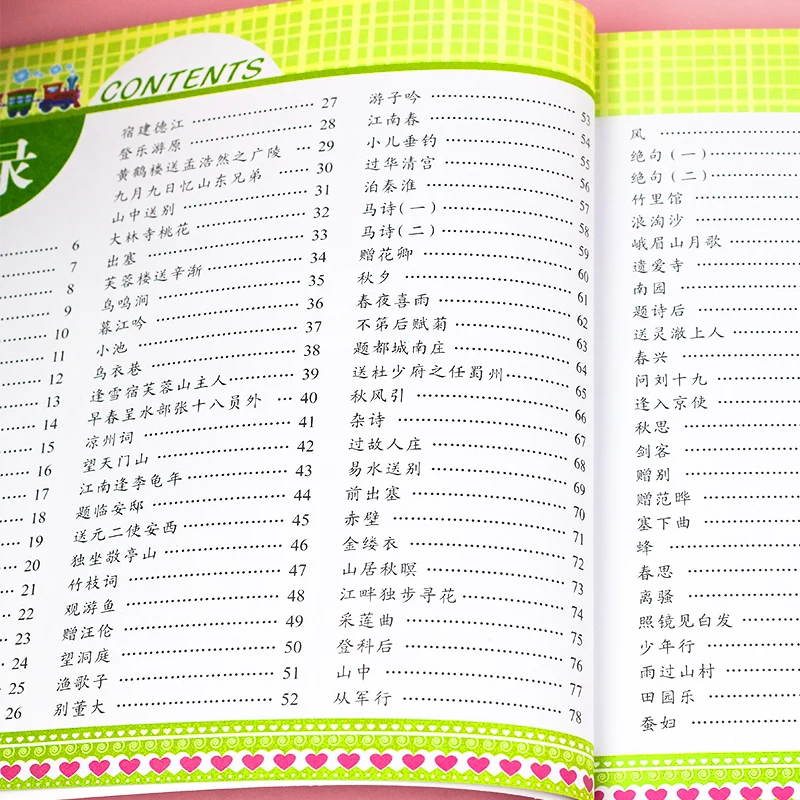 CONTENTS
录
6
7
8
9
10
11
12
13
14
15
16
17
18
19
20
21
22
23
24
25
26
宿建德江 27
登乐游原 28
黄鹤楼送孟浩然之广陵 29
九月九日忆山东兄弟 30
山中送别 31
大林寺桃花 32
出塞 33
芙蓉楼送辛渐 34
鸟鸣涧 35
暮江吟 36
小池 37
乌衣巷 38
逢雪宿芙蓉山主人 39
早春呈水部张十八员外 40
凉州词 41
望天门山 42
江南逢李龟年 43
题临安邸 44
送元二使安西 45
独坐敬亭山 46
竹枝词 47
观游鱼 48
赠汪伦 49
望洞庭 50
渔歌子 51
别董大 52
游子吟 53
江南春 54
小儿垂钓 55
过华清宫 56
泊秦淮 57
马诗(一) 58
马诗(二) 59
赠花卿 60
秋夕 61
春夜喜雨 62
不第后赋菊 63
题都城南庄 64
送杜少府之任蜀州 65
秋风引 66
杂诗 67
过故人庄 68
易水送别 69
前出塞 70
赤壁 71
金缕衣 72
山居秋暝 73
江畔独步寻花 74
采莲曲 75
登科后 76
山中 77
从军行 78
风
绝句(一)
绝句(二)
竹里馆
浪淘沙
峨眉山月歌
遗爱寺
南园
题诗后
送灵澈上人
春兴
问刘十九
逢入京使
秋思
剑客
赠别
赠范晔
塞下曲
蜂
春思
离骚
照镜见白发
少年行
雨过山村
田园乐
蚕妇